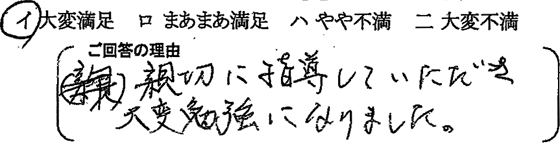 イ 大変満足 ロ まあまあ満足 ハ やや不満 ニ 大変不満
ご回答の理由
親切に指導していただき
大変勉強になりました。